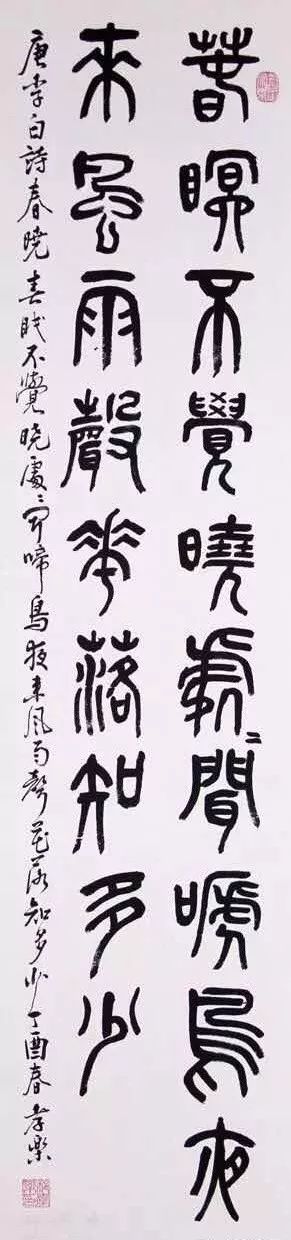 春瞑不覺曉處〻聞嗁鳥夜
來風雨聲華落知多少
唐李白詩春曉 春眠不覺曉處〻聞啼鳥夜来风雨聲花落知多少丁酉春孝樂